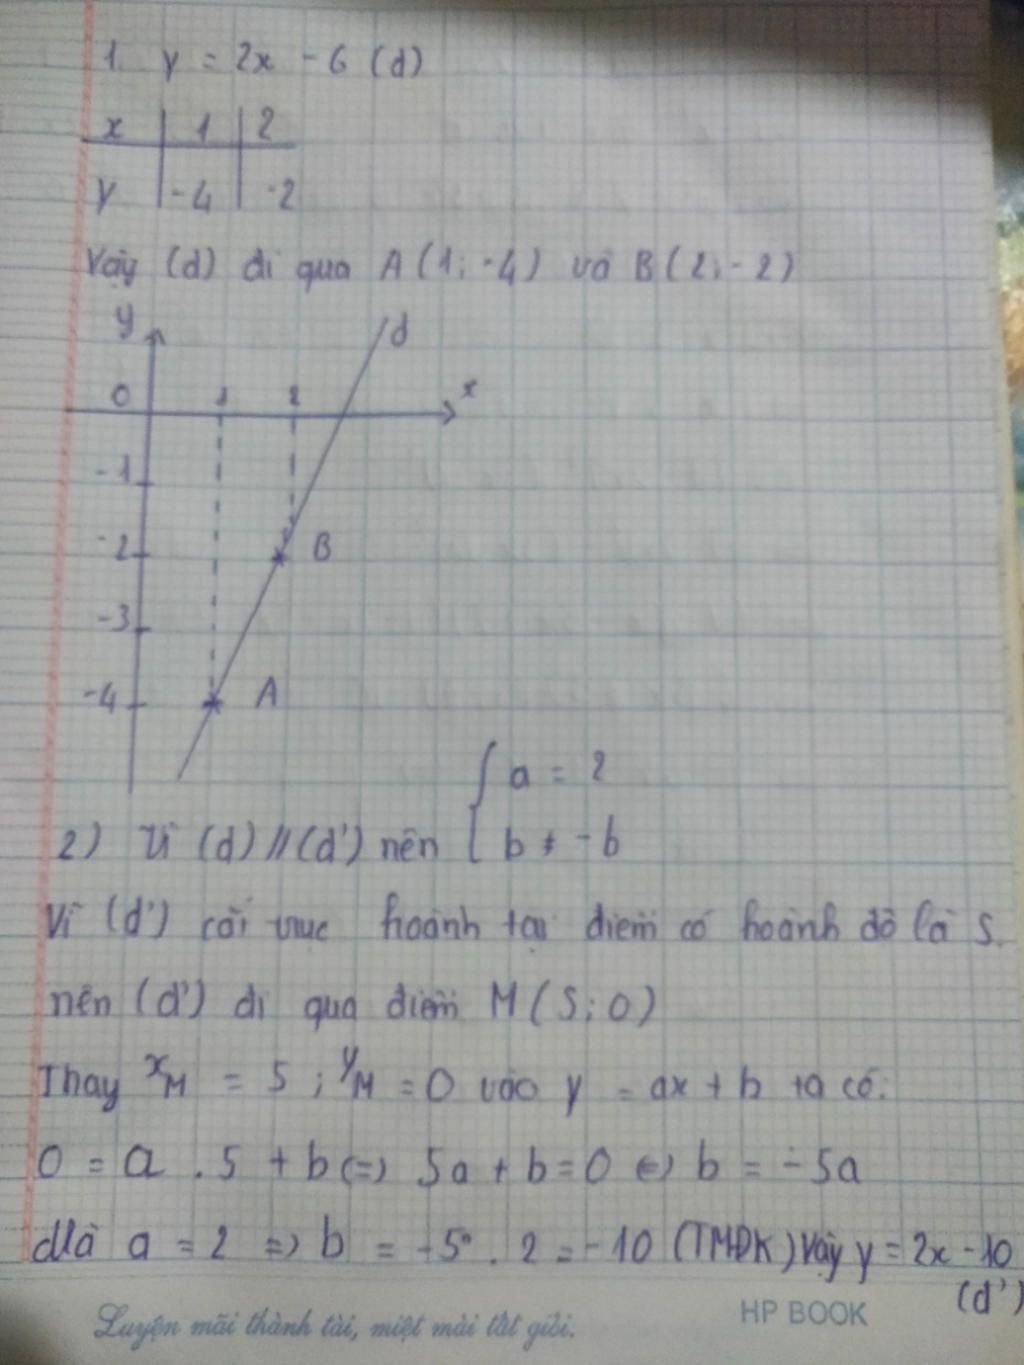 1. y = 2x - 6 (d)
x | 1 | 2
y | -4 | -2
Vậy (d) đi qua A(1; -4) và B(2; -2)
y
d
0 1 2 x
-1
-2 B
-3
-4 A
{ a = 2
2) Vì (d) // (d') nên { b ≠ -6
Vì (d') cắt trục hoành tại điểm có hoành độ là 5.
nên (d') đi qua điểm M(5; 0)
Thay xM = 5 ; yM = 0 vào y = ax + b ta có:
0 = a . 5 + b <=> 5a + b = 0 <=> b = -5a
Mà a = 2 => b = -5 . 2 = -10 (TMĐK) Vậy y = 2x - 10
(d')
Luyện mãi thành tài, miệt mài tất giỏi.
HP BOOK